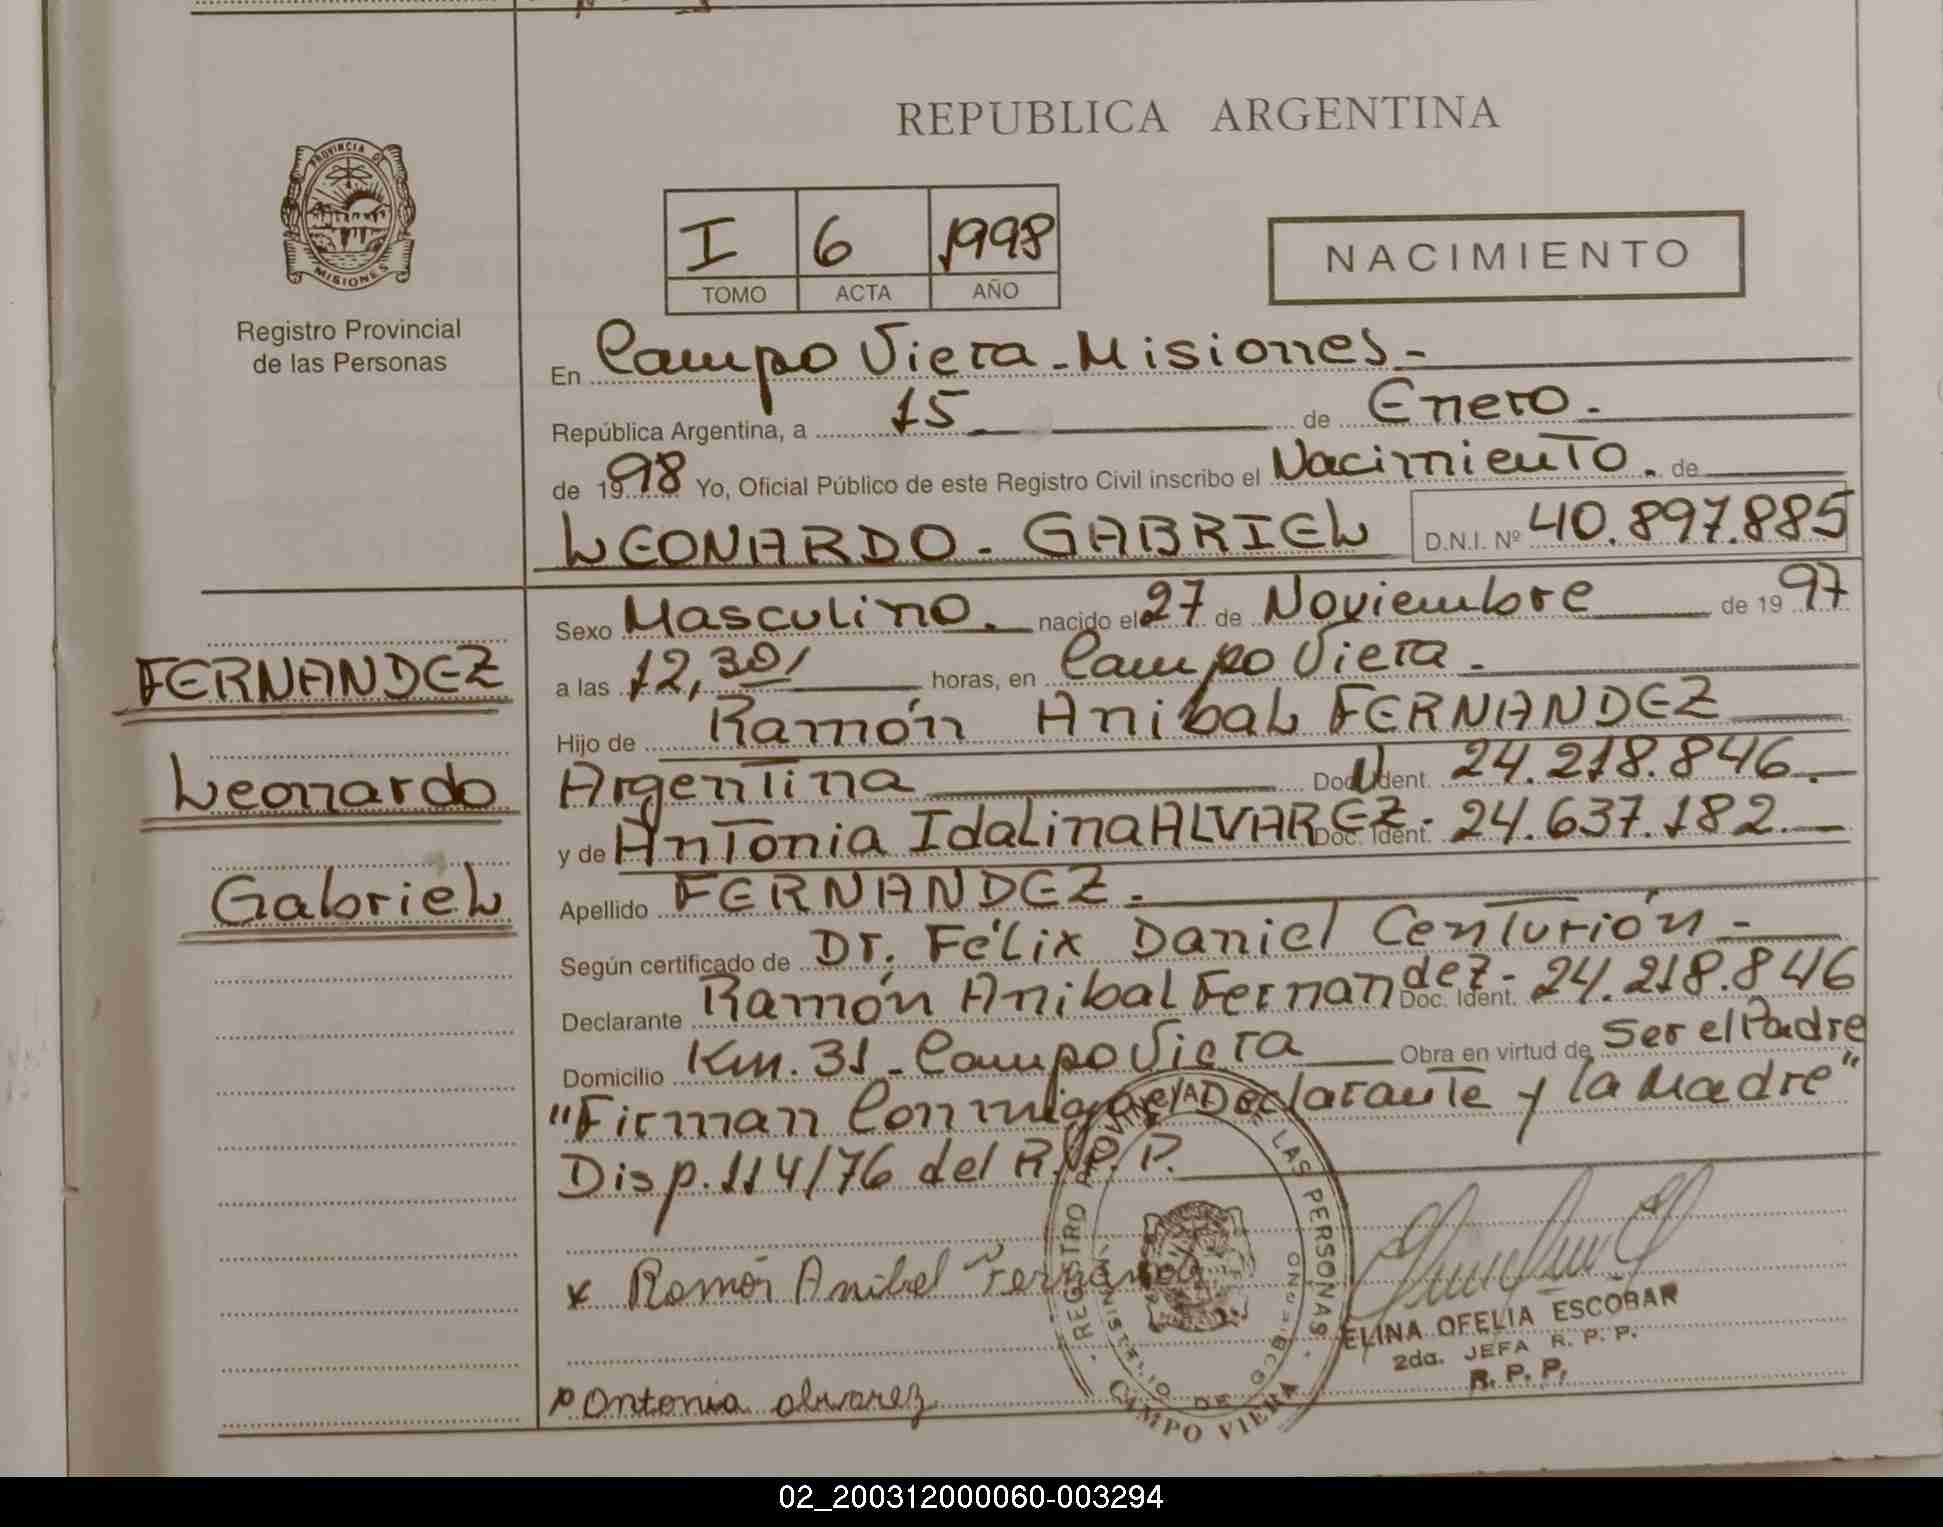 REPUBLICA ARGENTINA
PROVINCIA DE
MISIONES
Registro Provincial
de las Personas
I 6 1998
TOMO ACTA AÑO
NACIMIENTO
En Campo Viera - Misiones -
República Argentina, a 15 de Enero.
de 1998 Yo, Oficial Público de este Registro Civil inscribo el Nacimiento. de
LEONARDO - GABRIEL D.N.I. Nº 40.897.885
Sexo Masculino. nacido el 27 de Noviembre de 1997
FERNANDEZ
a las 12,30' horas, en Campo Viera -
Hijo de Ramón Anibal FERNANDEZ
Leonardo
Argentina Doc. Ident. 24.218.846.
y de Antonia Idalina ALVAREZ - Doc. Ident. 24.637.182.
Gabriel
Apellido FERNANDEZ -
Según certificado de Dr. Félix Daniel Centurión -
Declarante Ramón Anibal Fernandez - Doc. Ident. 24.218.846
Domicilio Km. 31 - Campo Viera Obra en virtud de Ser el Padre
"Firman Conmigo el Declarante y la Madre"
Disp. 114/76 del R.P.P.
REGISTRO PROVINCIAL DE LAS PERSONAS
CAMPO VIERA
x Ramón Anibel Fernandez
ELINA OFELIA ESCOBAR
2da. JEFA R. P. P.
R. P. P.
Antonia alvarez
02_200312000060-003294